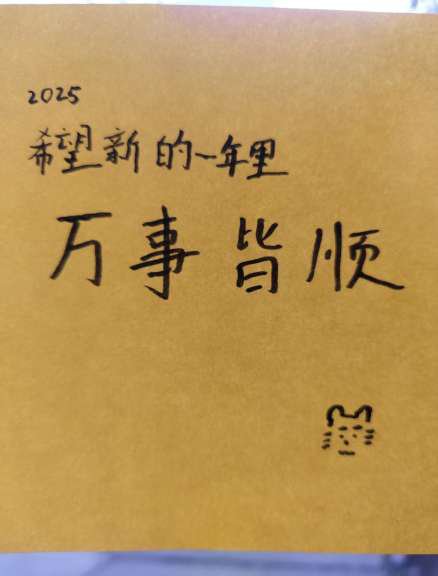 2025
希望新的一年里
万事皆顺